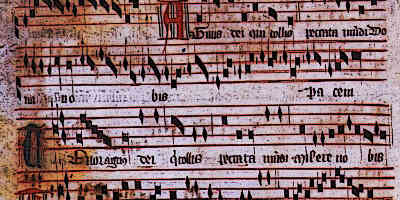 Agnus dei qui tollis peccata mūdi Do
na no bis pa cem
dei qtollis peccata mūdi misere no bis